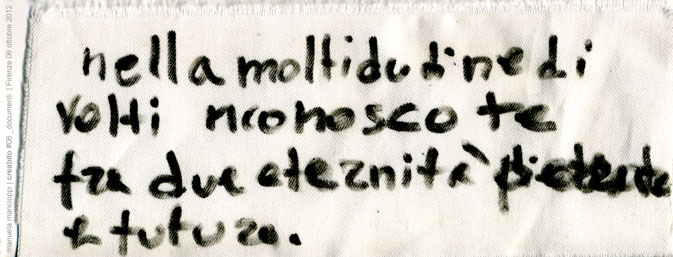 manuela mancioppi | creabito #06 _documenti | Firenze 06 ottobre 2012
nella moltidudine di
volti riconosco te
fra due eternità
e futura.